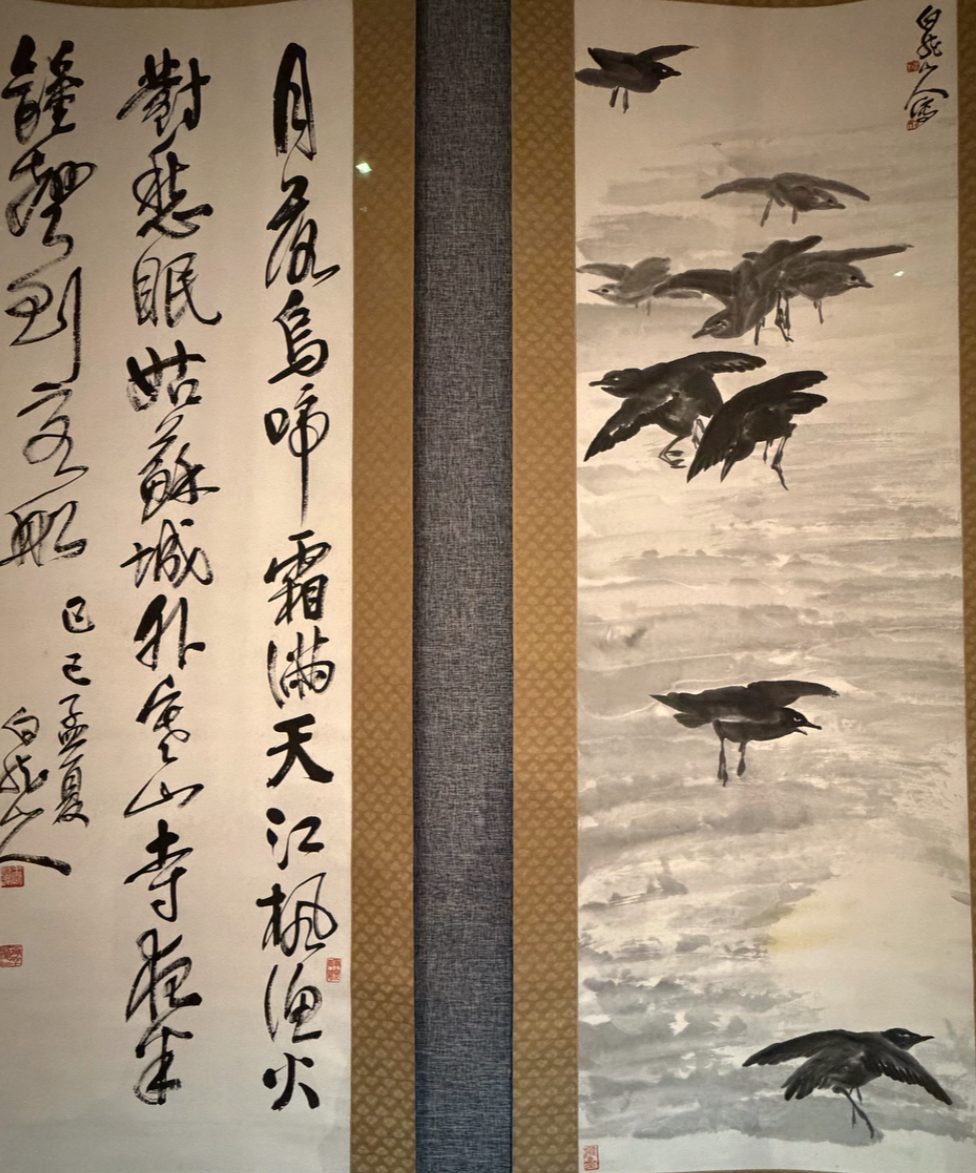 月落烏啼霜滿天江楓漁火
對愁眠姑蘇城外寒山寺夜半
鐘聲到客船
己巳孟夏
白龍山人
白龍山人寫